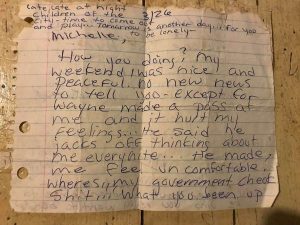 late, late at night
Children of the 3/26
time to come
and play, tomorrow is another day. for you
Michelle, to be lonely-
How you doing? My
weekend was nice and
peaceful. no new news
to tell you - except for
Wayne made a pass at
me and it hurt my
feelings... He said he
jacks off thinking about
me everynite... He made,
me feel uncomfortable.
wheres,, my government check
Shit... What you been up